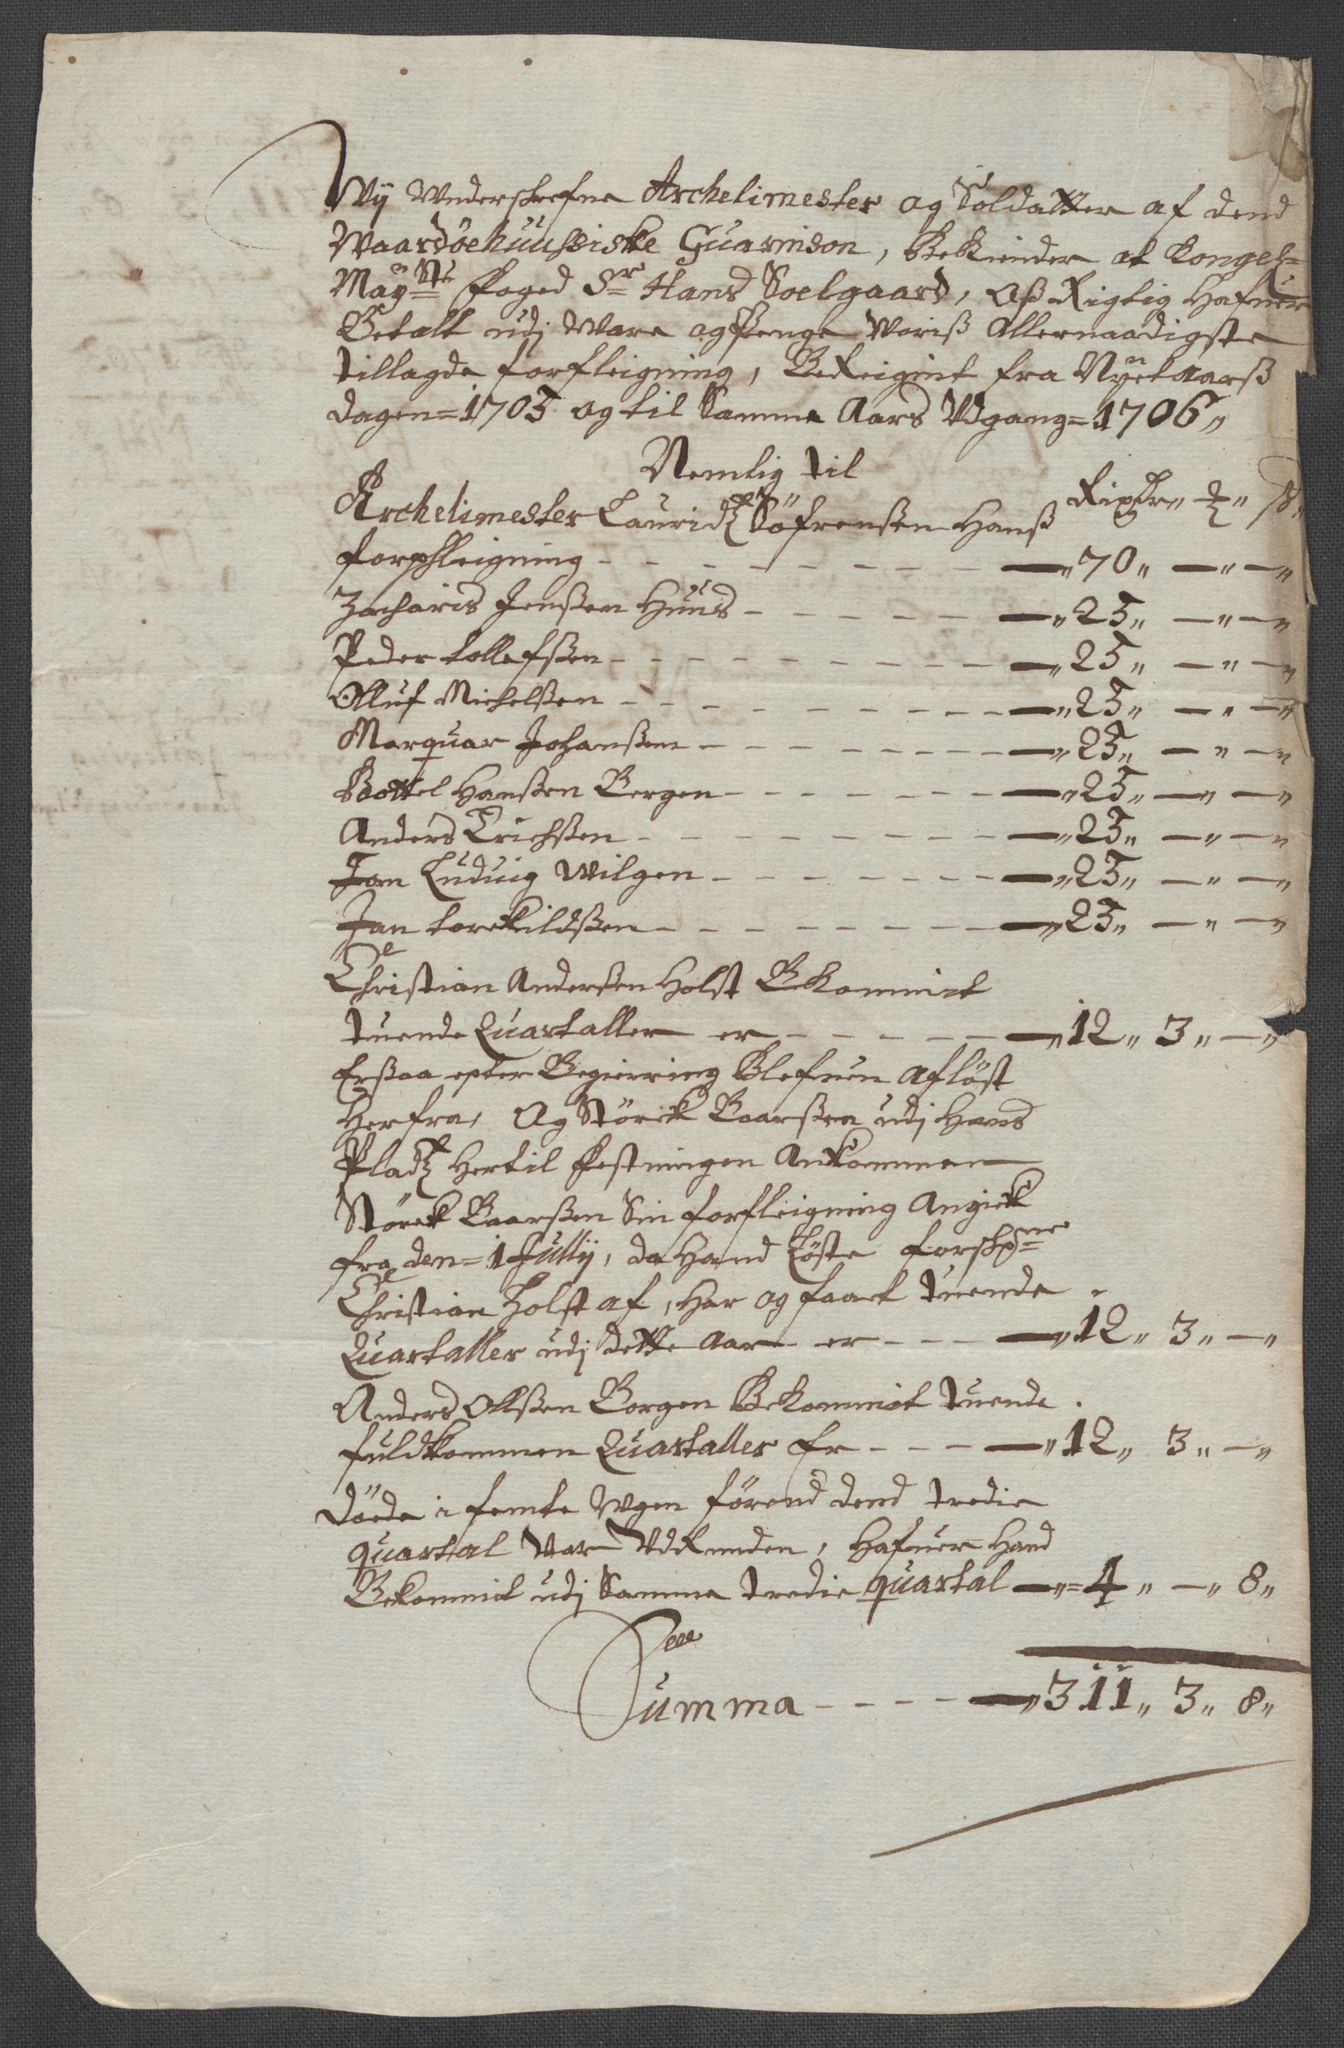 Wij Underskrefne Archelimester og Soldatter af dend
Waardøehuussiske Guarnison, Bekiender at Kongel=
Maÿ:sts Foged Sr Hans Soelgaard, oß Rigtig Hafuer
Betalt udj Ware og Penge Woriß Allernaadigste
tillagde forfleigning, Bereignt fra Nyetaarß
dagen=1705 og til Samme Aars Udgang=1706„
Nemlig til
Rixdr„ „ ß„
Archelimester Lauridtz Söfrenßen Hanß
forphleigning - - - - - - - - — „70„ —„—„
Zacharis Jenßen Huus - - - - - — „25„ —„—„
Peder tollefßen - - - - - - - - — „25„ —„—„
Olluf Michelßen - - - - - - - - — „25„ —„—„
Marquar Johanßen - - - - - - - — „25„ —„—„
Bottel Hanßen Bergen - - - - - - — „25„ —„—„
Anders Erichßen - - - - - - - - — „25„ —„—„
Jan Luduig Wilgen - - - - - - - — „25„ —„—„
Jan torekildßen - - - - - - - — „25„ —„—„
Christian Anderßen Holst Bekommit
tuende Quartaller er - - - - - — „12„ 3„ —„
Erßaa epter Begierring Blefuen Aflöst
Herfra, Og Störck Baarßen udj Hans
Pladtz Hertil Festningen Ankommen
Störck Baarßen Sin forfleigning Angick
fra den=1 Jullij, da Hand Löste forschr:ne
Christian Holst af, Har og faaet tuende
Quartaller udj dette Aar er - - - — „12„ 3„ —„
Anders Olßen Borgen Bekommit tuende
fuldkommen Quartaller Er - - - — „12„ 3„ —„
Döede i femte Ugen førend dend tredie
quartal Var Udrunden, Hafuer Hand
Bekommit udj Samme tredie quartal —„=4„ —„ 8„
Summa - - - - — „311„ 3„ 8„